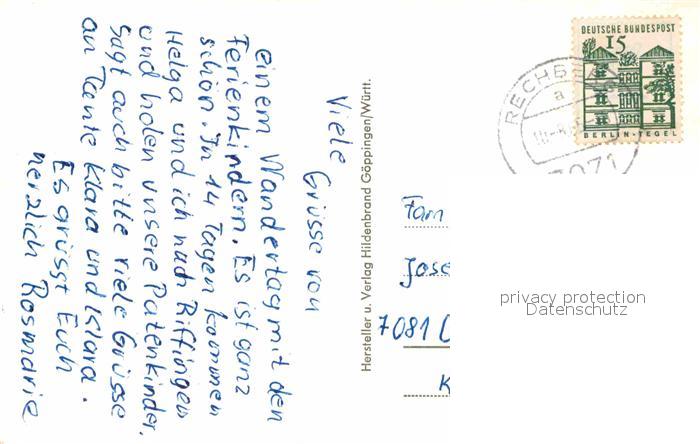 Viele
Grüsse von
einem Wandertag mit den
Ferienkindern. Es ist ganz
schön. In 14 Tagen kommen
Helga und ich nach Riffingen
und holen unsere Patenkinder.
Sagt auch bitte viele Grüsse
an Tante Klara und Klara.
Es grüsst Euch
herzlich Rosmarie
Hersteller u. Verlag Hildenbrand Göppingen/Württ.
DEUTSCHE BUNDESPOST
15
BERLIN-TEGEL
RECHB
a
7071
Fam
Jose
7081
K
privacy protection
Datenschutz